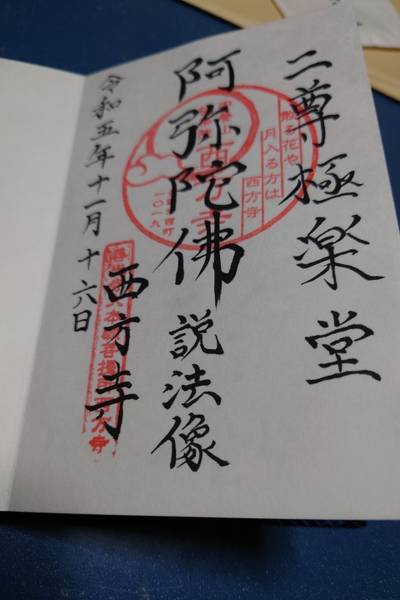 二尊極楽堂
阿弥陀佛 説法像
西方寺
令和五年十一月十六日
散る花や
月入る方は
西方寺